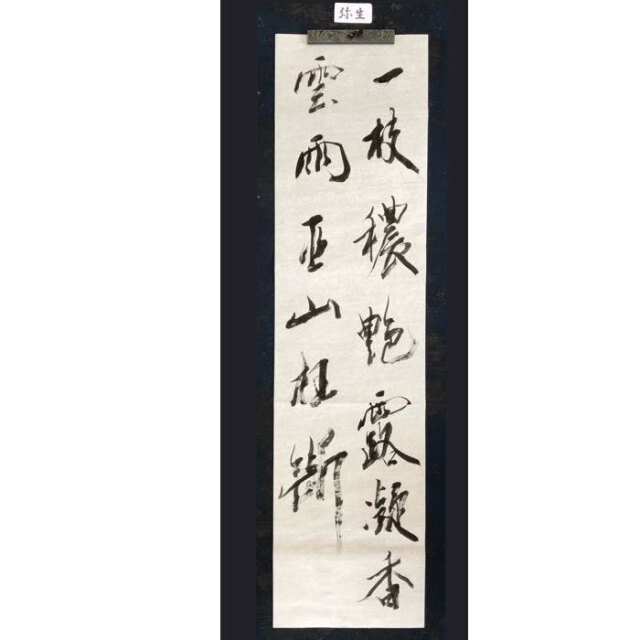 弥生
一枝穠艶露凝香
雲雨巫山枉斷